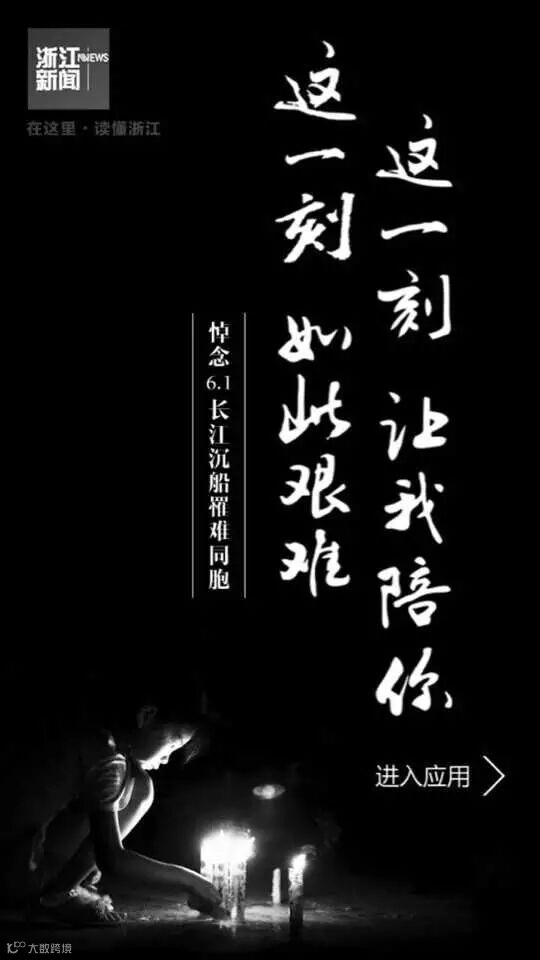 浙江 NEWS
新闻
在这里·读懂浙江
这一刻 如此艰难
这一刻 让我陪你
悼念6.1长江沉船罹难同胞
进入应用
大数跨境